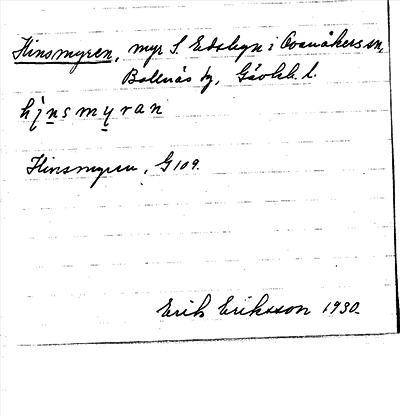 Hinsmyren, myr S. Edsbyn i Ovanåkers sn,
Bollnäs tg, Gävleb. l.
hinsmyran
Hinsmyren, G 109.
Erik Eriksson 1930.